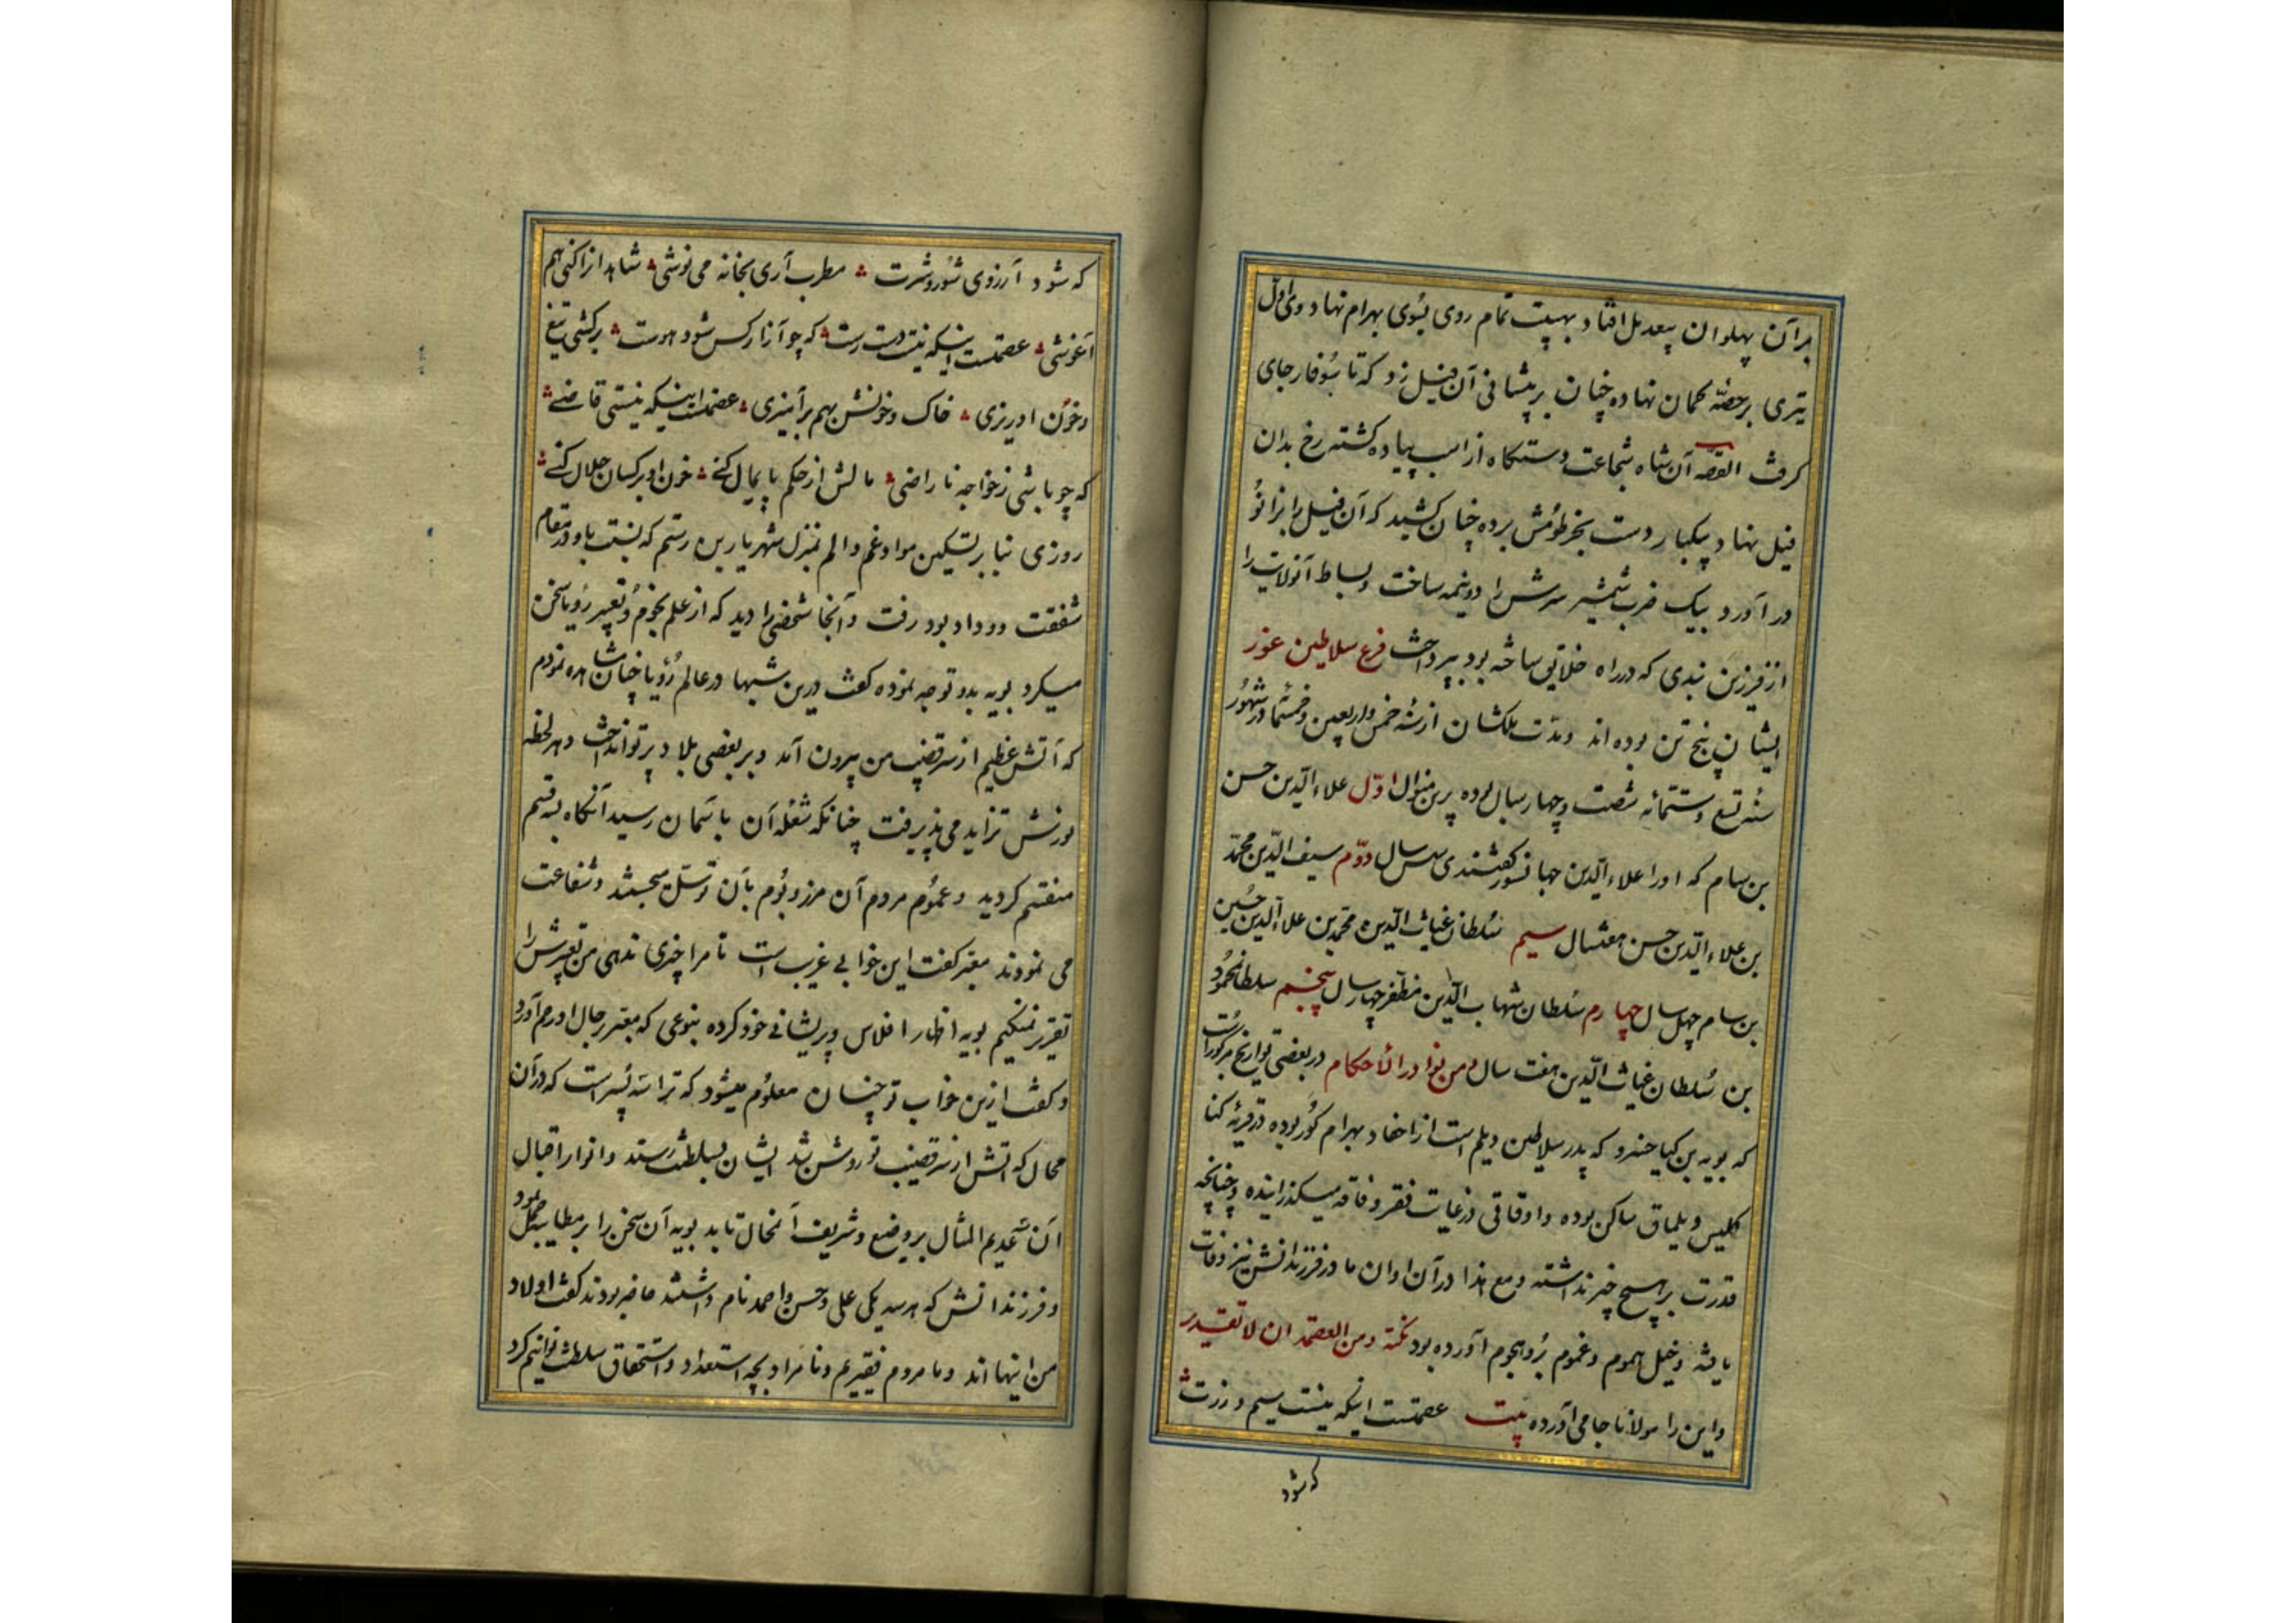 بر آن پهلوان پیعدیل افتاد بهیبت تمام روی بسوی بهرام نهاد وی اول
تیری بر حصّهٔ کمان نهاده چنان بر پیشانی آن فیل زد که تا سوفار جای
کرفت القصه آن شاه شجاعت دستکاه از اسب پیاده کشته رخ بدان
فیل نهاد و بیکبار دست بخرطومش برده چنان کشید که آن فیل را بزانو
در آورد و بیک ضرب شمشیر سرش را دو نیمه ساخت و بساط آنولایت را
از فرزین بندی که در راه خلایق ساخته بود بپرداخت فرع سلاطین غور
ایشان پنج تن بوده اند و مدّت ملکشان از سنه خمس و اربعین و خمسمائه در شهور
سنه تسع و ستمائه شصت و چهار سال بوده برین منوال اوّل علاء الدّین حسن
بن سام که او را علاء الدّین جهانسوز کفتندی سی سال دوّم سیف الدّین محمّد
بن علاء الدّین حسن هفتسال سیم سُلطان غیاث الدّین محمّد بن علاء الدّین حُسین
بن سام چهل سال چهارم سُلطان شهاب الدّین مظفر چهار سال پنجم سلطان محمُود
بن سُلطان غیاث الدّین هفت سال ومن نوادر الاحکام در بعضی تواریخ مذکورست
که بویه بن کیاخسرو که پدر سلاطین دیلم است از احفاد بهرام کُور بوده در قریهٔ کیا
کلیس دیلمان ساکن بوده و اوقاتی در غایت فقر و فاقه میکذرانیده و چنانچه
قدرت بر هیچ چیز نداشته و مع هذا در آن اوان مادر فرزندانش نیز وفات
یافته و خیل هموم و غموم برُو هجوم آورده بود نکته ومن العصمة ان لا تقدر
واین را مولانا جامی آورده بیت عصمتست اینکه نیست سیم و زرت
که شود
که شود آرزوی شور و شرت مطرب آری بخانه می نوشی شاهد از اکنی هم
آغوشی عصمتست اینکه نیست دست رست که چو آزار کس شود هوست برکشی تیغ
و خون او ریزی خاک و خونش بهم بر آمیزی عصمتست اینکه نیستی قاضے
که چو باشی ز خواجه ناراضی مالش از حکم پایمال کنے خون او بر کسان حلال کنے
روزی بنا بر تسکین مواد غم و الم بمنزل شهریار بن رستم که نسبت باو در مقام
شفقت و وداد بود رفت و آنجا شخصی را دید که از علم نجوم و تعبیر رویا سخن
میکرد بویه بدو توجه نموده کفت درین شبها در عالم رُؤیا چنان مشاهده نمودم
که آتش عظیم از سر قضیب من بیرون آمد و بر بعضی بلاد پرتو انداخت و هر لحظه
نورش تزاید می پذیرفت چنانکه شعله آن باسمان رسید آنکاه بسه قسم
منقسم کردید و عموم مردم آن مرز و بوم بآن توسّل میجستند و شفاعت
می نمودند معبّر کفت این خوابی غریب است تا مرا چیزی ندهی من تعبیرش را
تقریر نمیکنیم بویه اظهار افلاس و پریشانی خود کرده بنوعی که معبّر بر حال او رحم آورد
و کفت ازین خواب تو چنان معلوم میشود که ترا سه پسر است که در آن
محال که آتش از سر قضیب تو روشن شد ایشان بسلطنت رسند و انوار اقبال
آن سه عدیم المثال بر وضیع و شریف آنمحال تابد بویه آن سخن را بر مطایبه حمل نمود
و فرزندانش که هر سه یکی علی و حسن و احمد نام داشتند حاضر بودند کفت اولاد
من اینها اند و ما مردم فقیریم و نامراد بچه استعداد و استحقاق سلطنت توانیم کرد